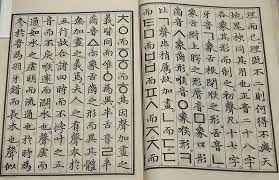 理而已理旣不二則何得不與天
地鬼神同其用也正音二十八字
各象其形而制之初聲凡十七字
牙音ㄱ象舌根閉喉之形舌音ㄴ
象舌附上腭之形脣音ㅁ象口形
齒音ㅅ象齒形喉音ㅇ象喉形ㅋ
比ㄱ聲出稍厲故加畫ㄴ而ㄷㄷ
而ㅌㅁ而ㅂㅂ而ㅍㅅ而ㅈㅈ而
ㅊㅇ而ㆆㆆ而ㅎ其因聲加畫之
義皆同而唯ㆁ爲異半舌音ㄹ半
齒音ㅿ亦象舌齒之形而異其體
無加畫之義焉夫人之有聲本於
五行故合諸四時而不悖叶之五
音而不戾喉邃而潤水也聲虛而
通如水之虛明而流通也於時爲
冬於音爲羽牙錯而長木也聲似